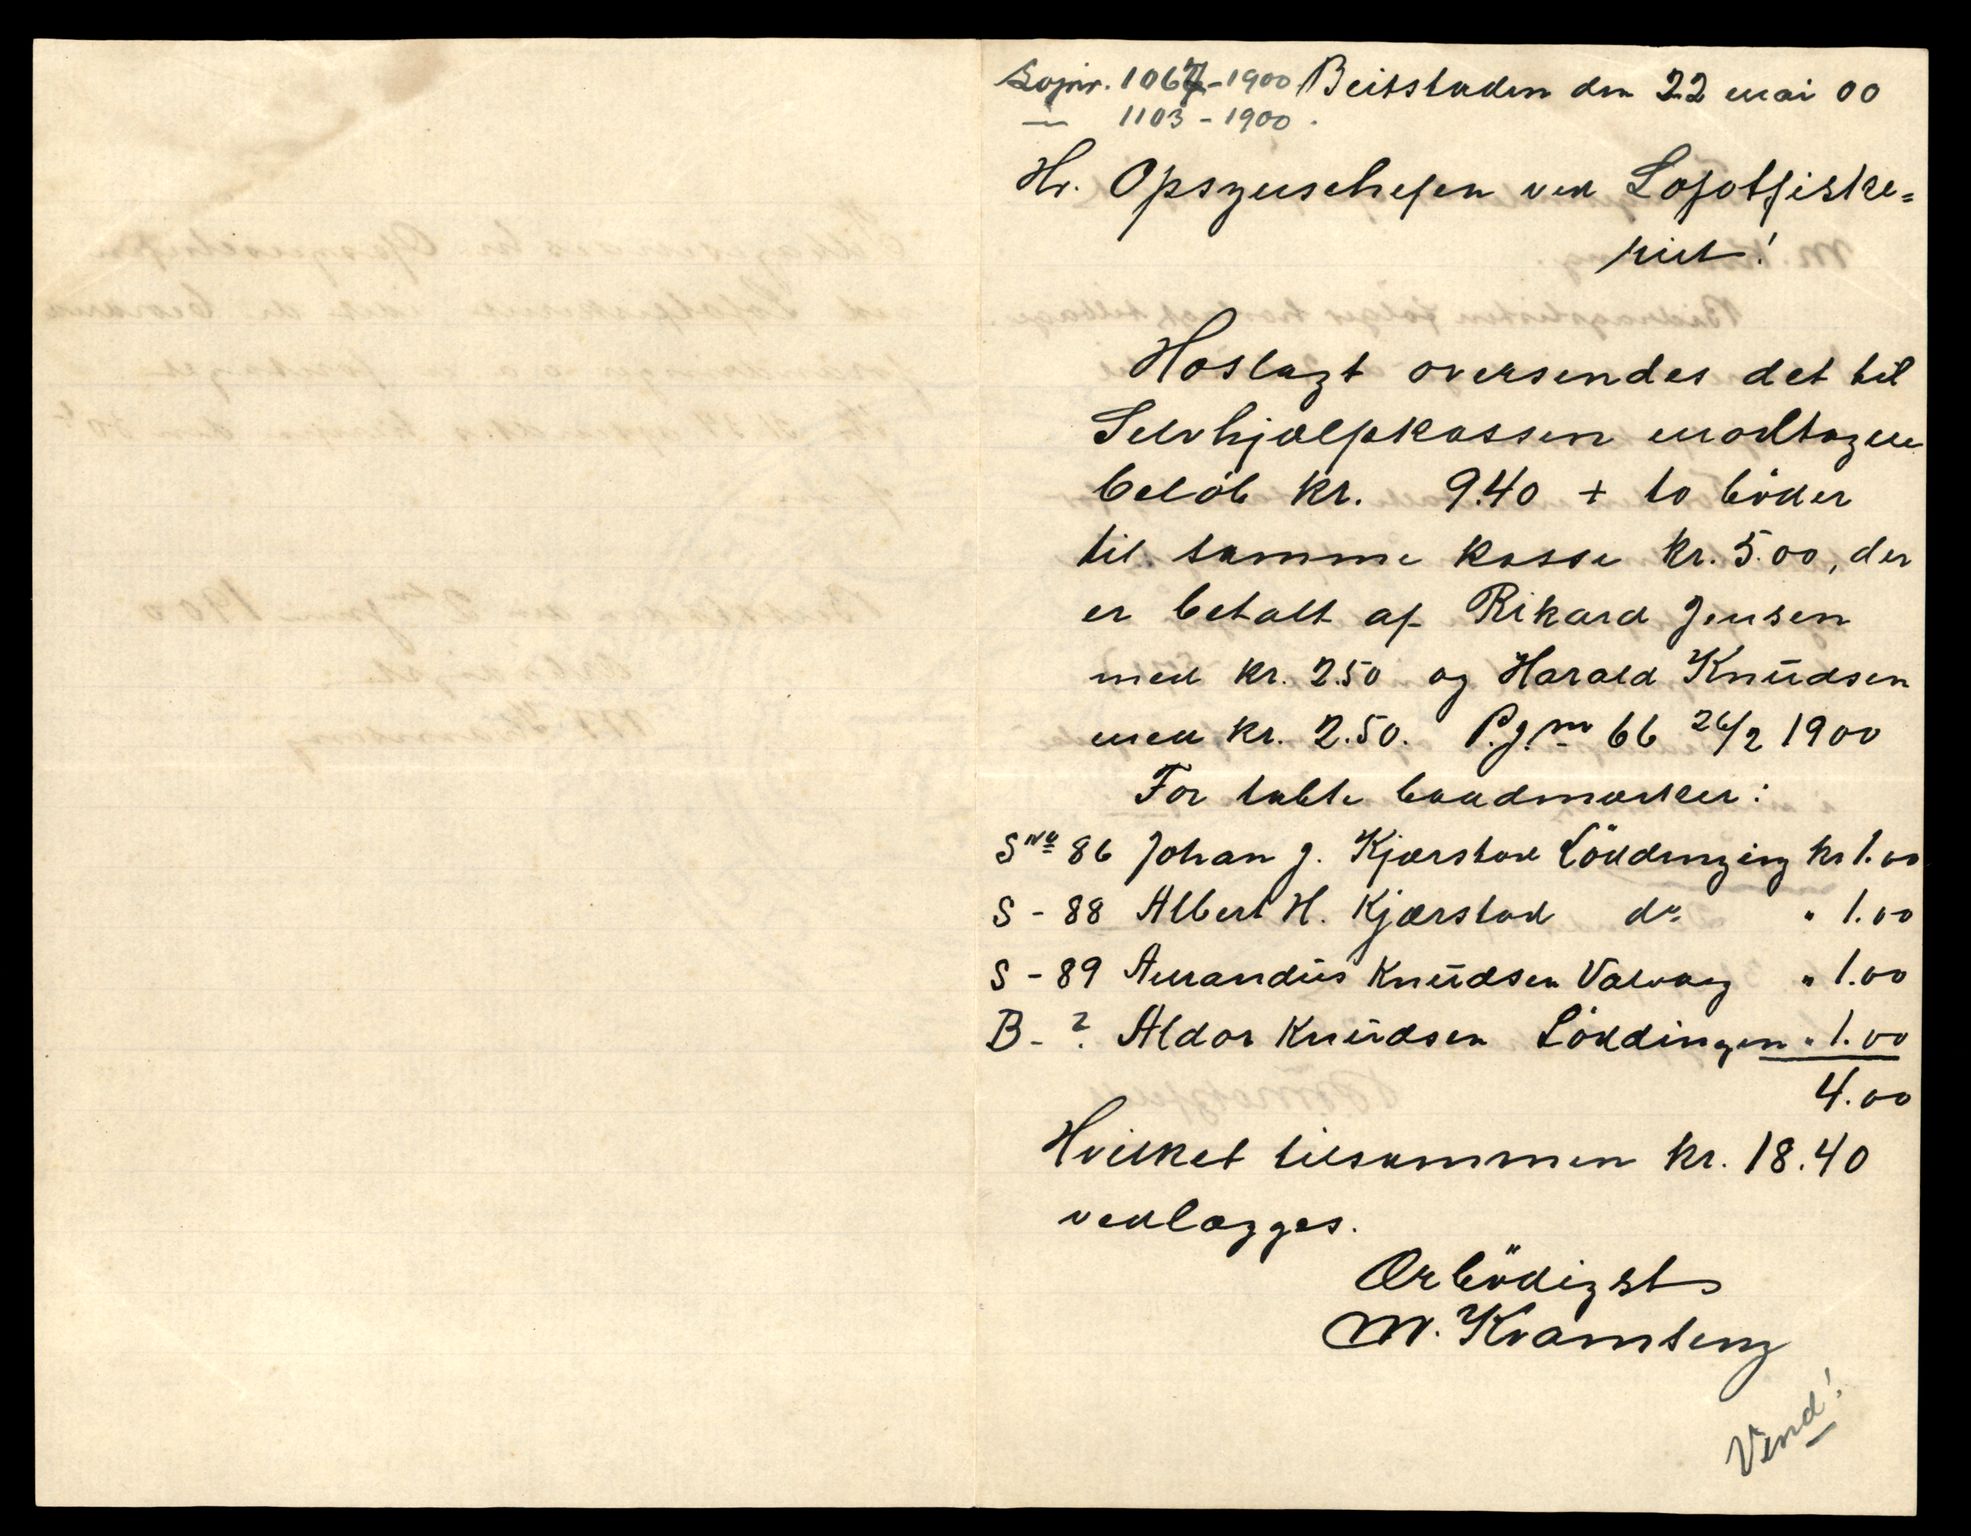 Kopnr. 1067-1900 Beitstaden den 22 mai 00
— 1103-1900.
Hr. Opsynschefen ved Lofotfiske=
riet!
Hoslagt oversendes det til
Selvhjælpkassen modtagne
beløb kr. 9.40 + to bøder
til samme kasse kr. 5.00, der
er betalt af Rikard Jensen
med kr. 2.50 og Harald Knudsen
med kr. 2.50. P.j. no 66 26/2 1900
For tabte baadmærker:
S No 86 Johan J. Kjærstad Löddinging kr 1.00
S - 88 Albert H. Kjærstad do " 1.00
S - 89 Amandus Knudsen Valvag " 1.00
B - ? Aldor Knudsen Löddingen " 1.00
4.00
Hvilket tilsammen kr. 18.40
vedlægges.
Ærbødigst
M. Kvamseng
Vend!